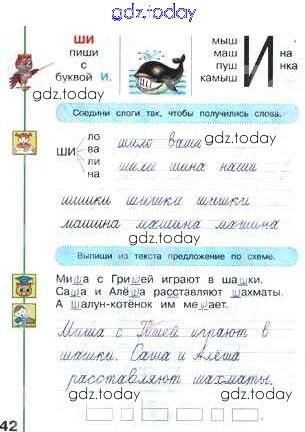 gdz.today
ШИ
пиши
с
буквой И.
мыш
маш
пуш
камыш
И
на
нка
gdz.today
gdz.today
Соедини слоги так, чтобы получились слова.
gdz.today
gdz.today
ШИ
ло
ва
ли
на
шило ваши
шили шина наши
gdz.today
gdz.today
шишки шишки шишки
машина машина машина
gdz.today
gdz.today
Выпиши из текста предложение по схеме.
Миша с Гришей играют в шашки.
Саша и Алёша расставляют шахматы.
А Шалун-котёнок им мешает.
gdz.today
gdz.today
Миша с Гришей играют в
шашки. Саша и Алёша
расставляют шахматы.
gdz.today
gdz.today
42